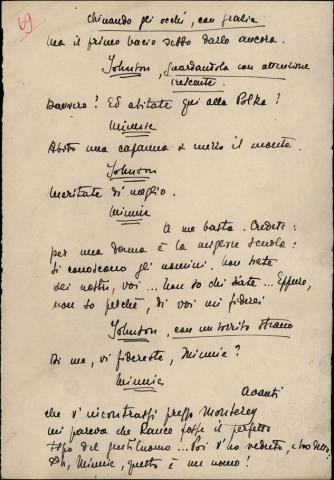 69
chinando gli occhi, con grazia
ma il primo bacio debbo darlo ancora.
Johnson, guardandola con attenzione
crescente.
Davvero? Ed abitate qui alla Polka?
Minnie
Abito una capanna a mezzo il monte.
Johnson
Meritate di meglio.
Minnie
A me basta. Credete:
per una donna è la migliore scuola:
si conoscono gli uomini. Non siete
dei nostri, voi ... non so chi siate ... Eppure,
non so perchè, di voi mi fiderei
Johnson, con un sorriso strano
Di me, vi fidereste, Minnie?
Minnie
Avanti
che v'incontrassi presso Monterey
mi pareva che Rance fosse il perfetto
tipo del gentiluomo ... Poi v'ho veduto, e ho detto:
Oh, Minnie, questo è un uomo!